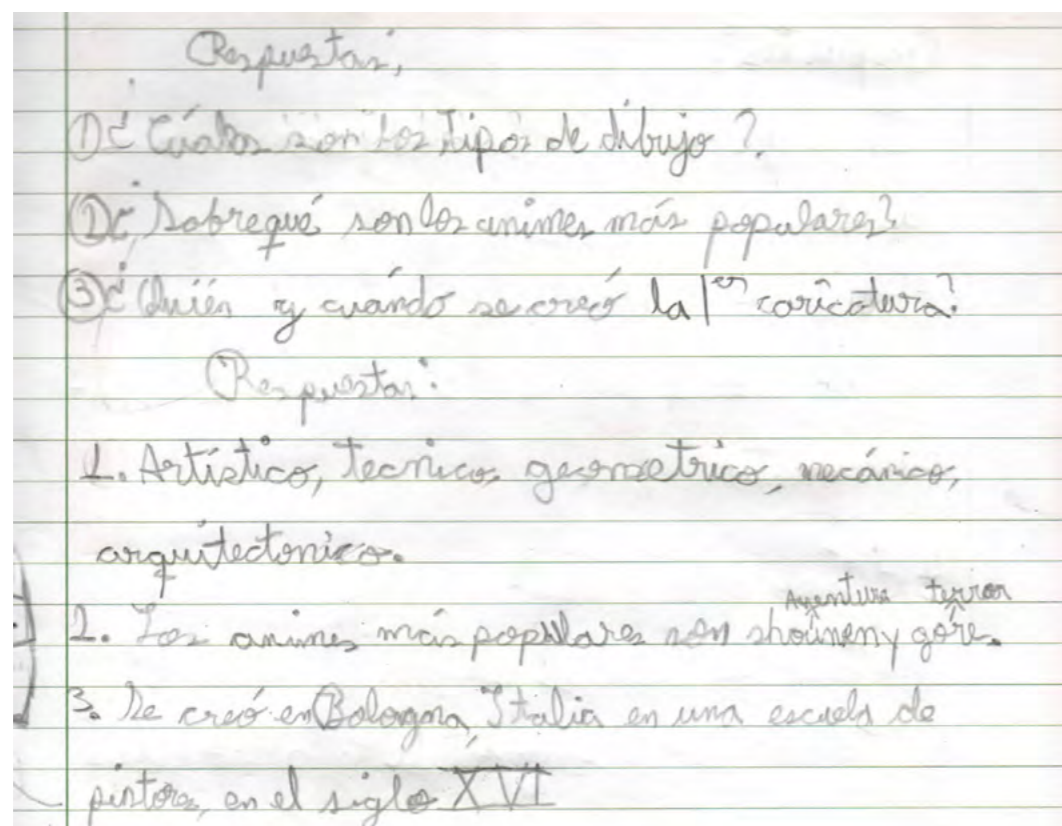 Respuestas;
① ¿Cuáles son los Tipos de dibujo?
② ¿Sobre qué son los animes más populares?
③ ¿Quién y cuándo se creó la 1er caricatura?
Respuestas:
1. Artístico, tecnico, geometrico, mecánico,
arquitectonico.
Aventura terror
2. Los animes más populares son shounen y góre.
3. Se creó en Bologna, Italia en una escuela de
pintores, en el siglo XVI